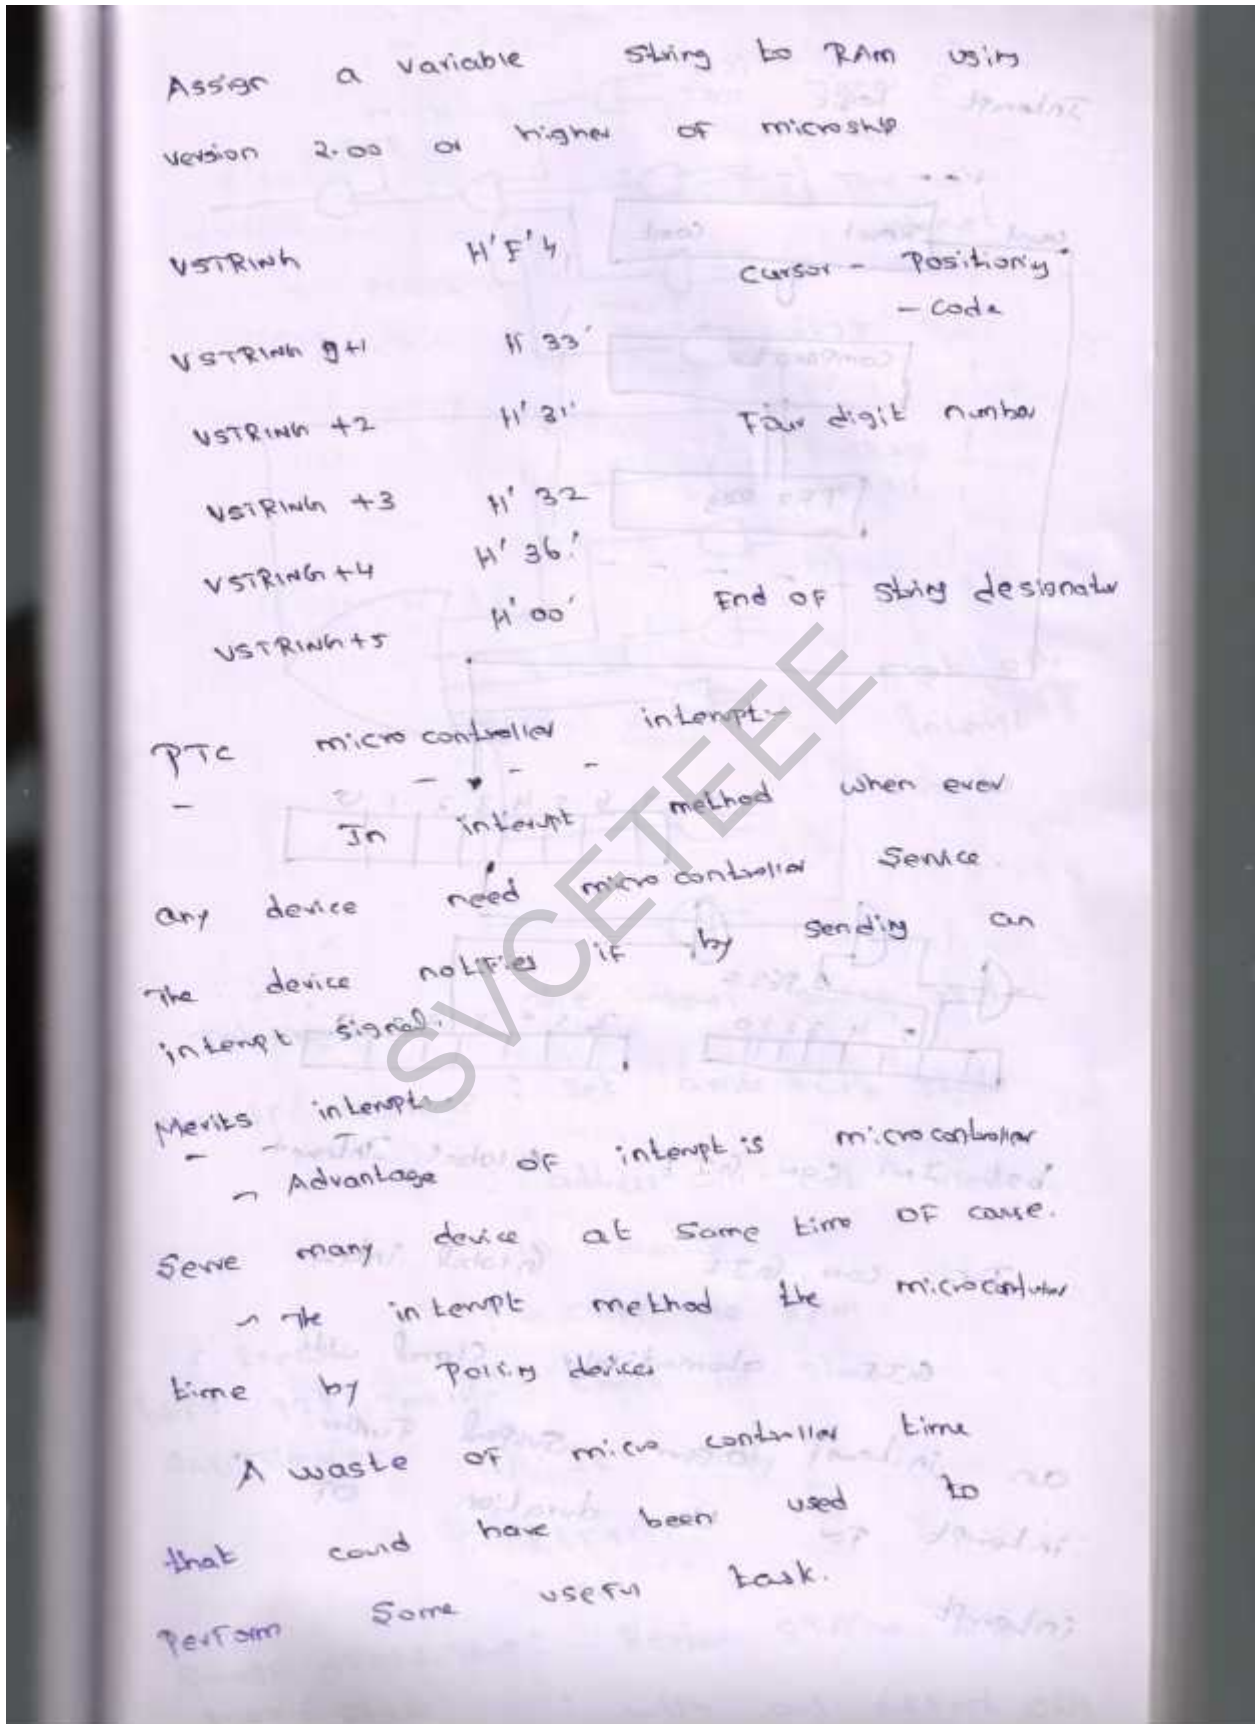 Assign a variable string to RAM using
version 2.00 or higher of microship
VSTRING H'F'4 Cursor - Positioning
- code
VSTRING g+1 H 33'
VSTRING +2 H' 31' Four digit number
VSTRING +3 H' 32
VSTRING +4 H' 36'
VSTRING +5 H' 00' End of string designator
PTC microcontroller interupt:-
In interupt method when ever
any device need microcontroller service.
The device notifies it by sending an
interupt signal.
Merits interupt:
- Advantage of interupt is microcontroller
serve many device at same time of cause.
- The interupt method the microcontroller
time by Polling devices
A waste of micro controller time
that could have been used to
perform some useful task.
SVCETEEE